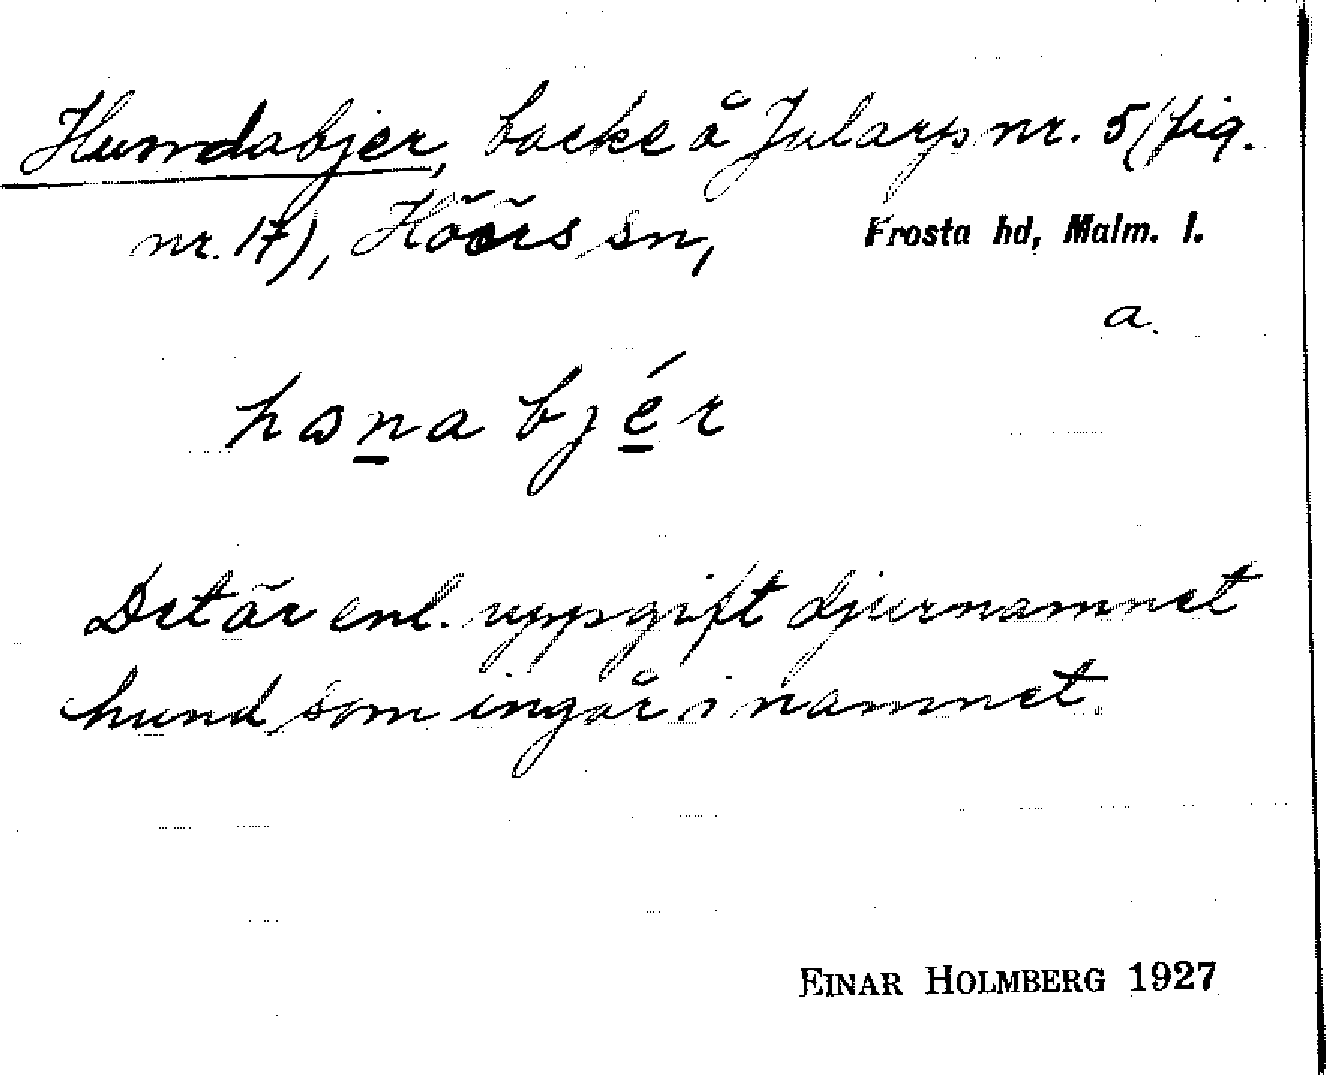 Hundabjer, backe å Jularp nr. 5 (fig.
nr. 17), Höörs sn, Frosta hd, Malm. l.
a.
hana bjér
Det är enl. uppgift djurnamnet
hund som ingår i namnet.
EINAR HOLMBERG 1927